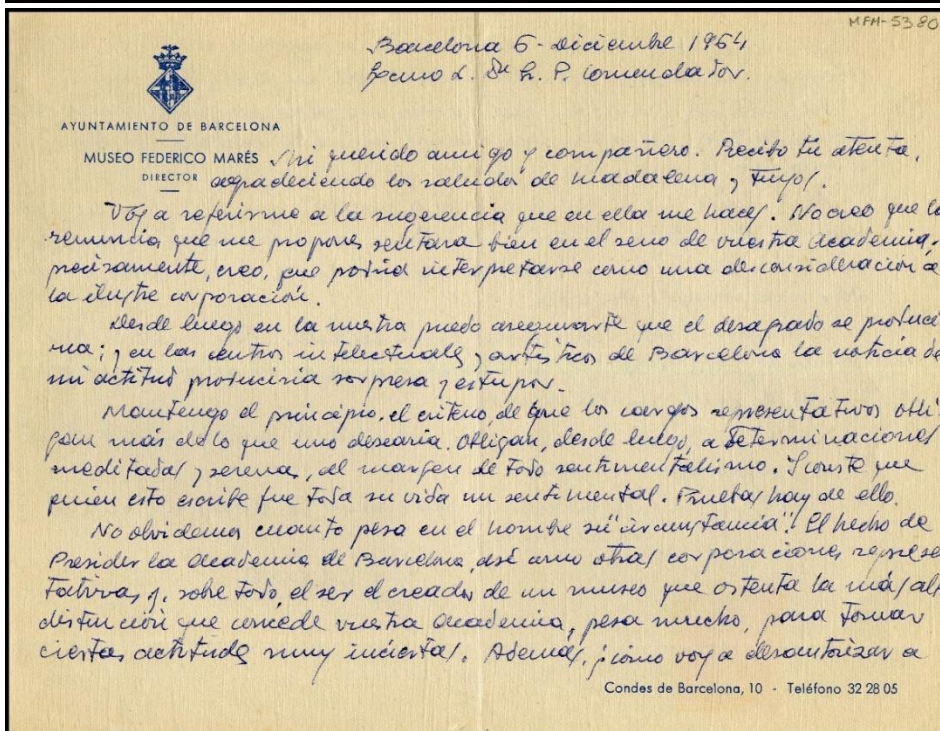 MFM-5380
Barcelona 6-diciembre 1964
Excmo S. Dn E. P. Comendador.
AYUNTAMIENTO DE BARCELONA
MUSEO FEDERICO MARÉS
DIRECTOR
Mi querido amigo y compañero. Recibo tu atenta,
agradeciendo los saludos de Madalena y tuyos.
Voy a referirme a la sugerencia que en ella me haces. No creo que la
renuncia que me propones sentara bien en el seno de vuestra Academia.
precisamente, creo, que podria interpretarse como una desconsideración a
la ilustre corporación.
Desde luego en la nuestra puedo asegurarte que el desagrado se produci
ria; y en los centros intelectuales y artisticos de Barcelona la noticia de
mi actitud produciria sorpresa y estupor.
Mantengo el principio, el criterio, de que los cargos representativos obli
gan más de lo que uno desearia. Obligan, desde luego, a determinaciones
meditadas y serenas, al margen de todo sentimentalismo. Y conste que
quien esto escribe fue toda su vida un sentimental. Pruebas hay de ello.
No olvidemos cuanto pesa en el hombre su "circunstancia". El hecho de
Presidir la Academia de Barcelona, asi como otras corporaciones represe
tativas y, sobre todo, el ser el creador de un museo que ostenta la más alt
distinción que concede vuestra Academia, pesa mucho, para tomar
ciertas actitudes muy inciertas. Además, ¿cómo voy a desautorizar a
Condes de Barcelona, 10 - Teléfono 32 28 05